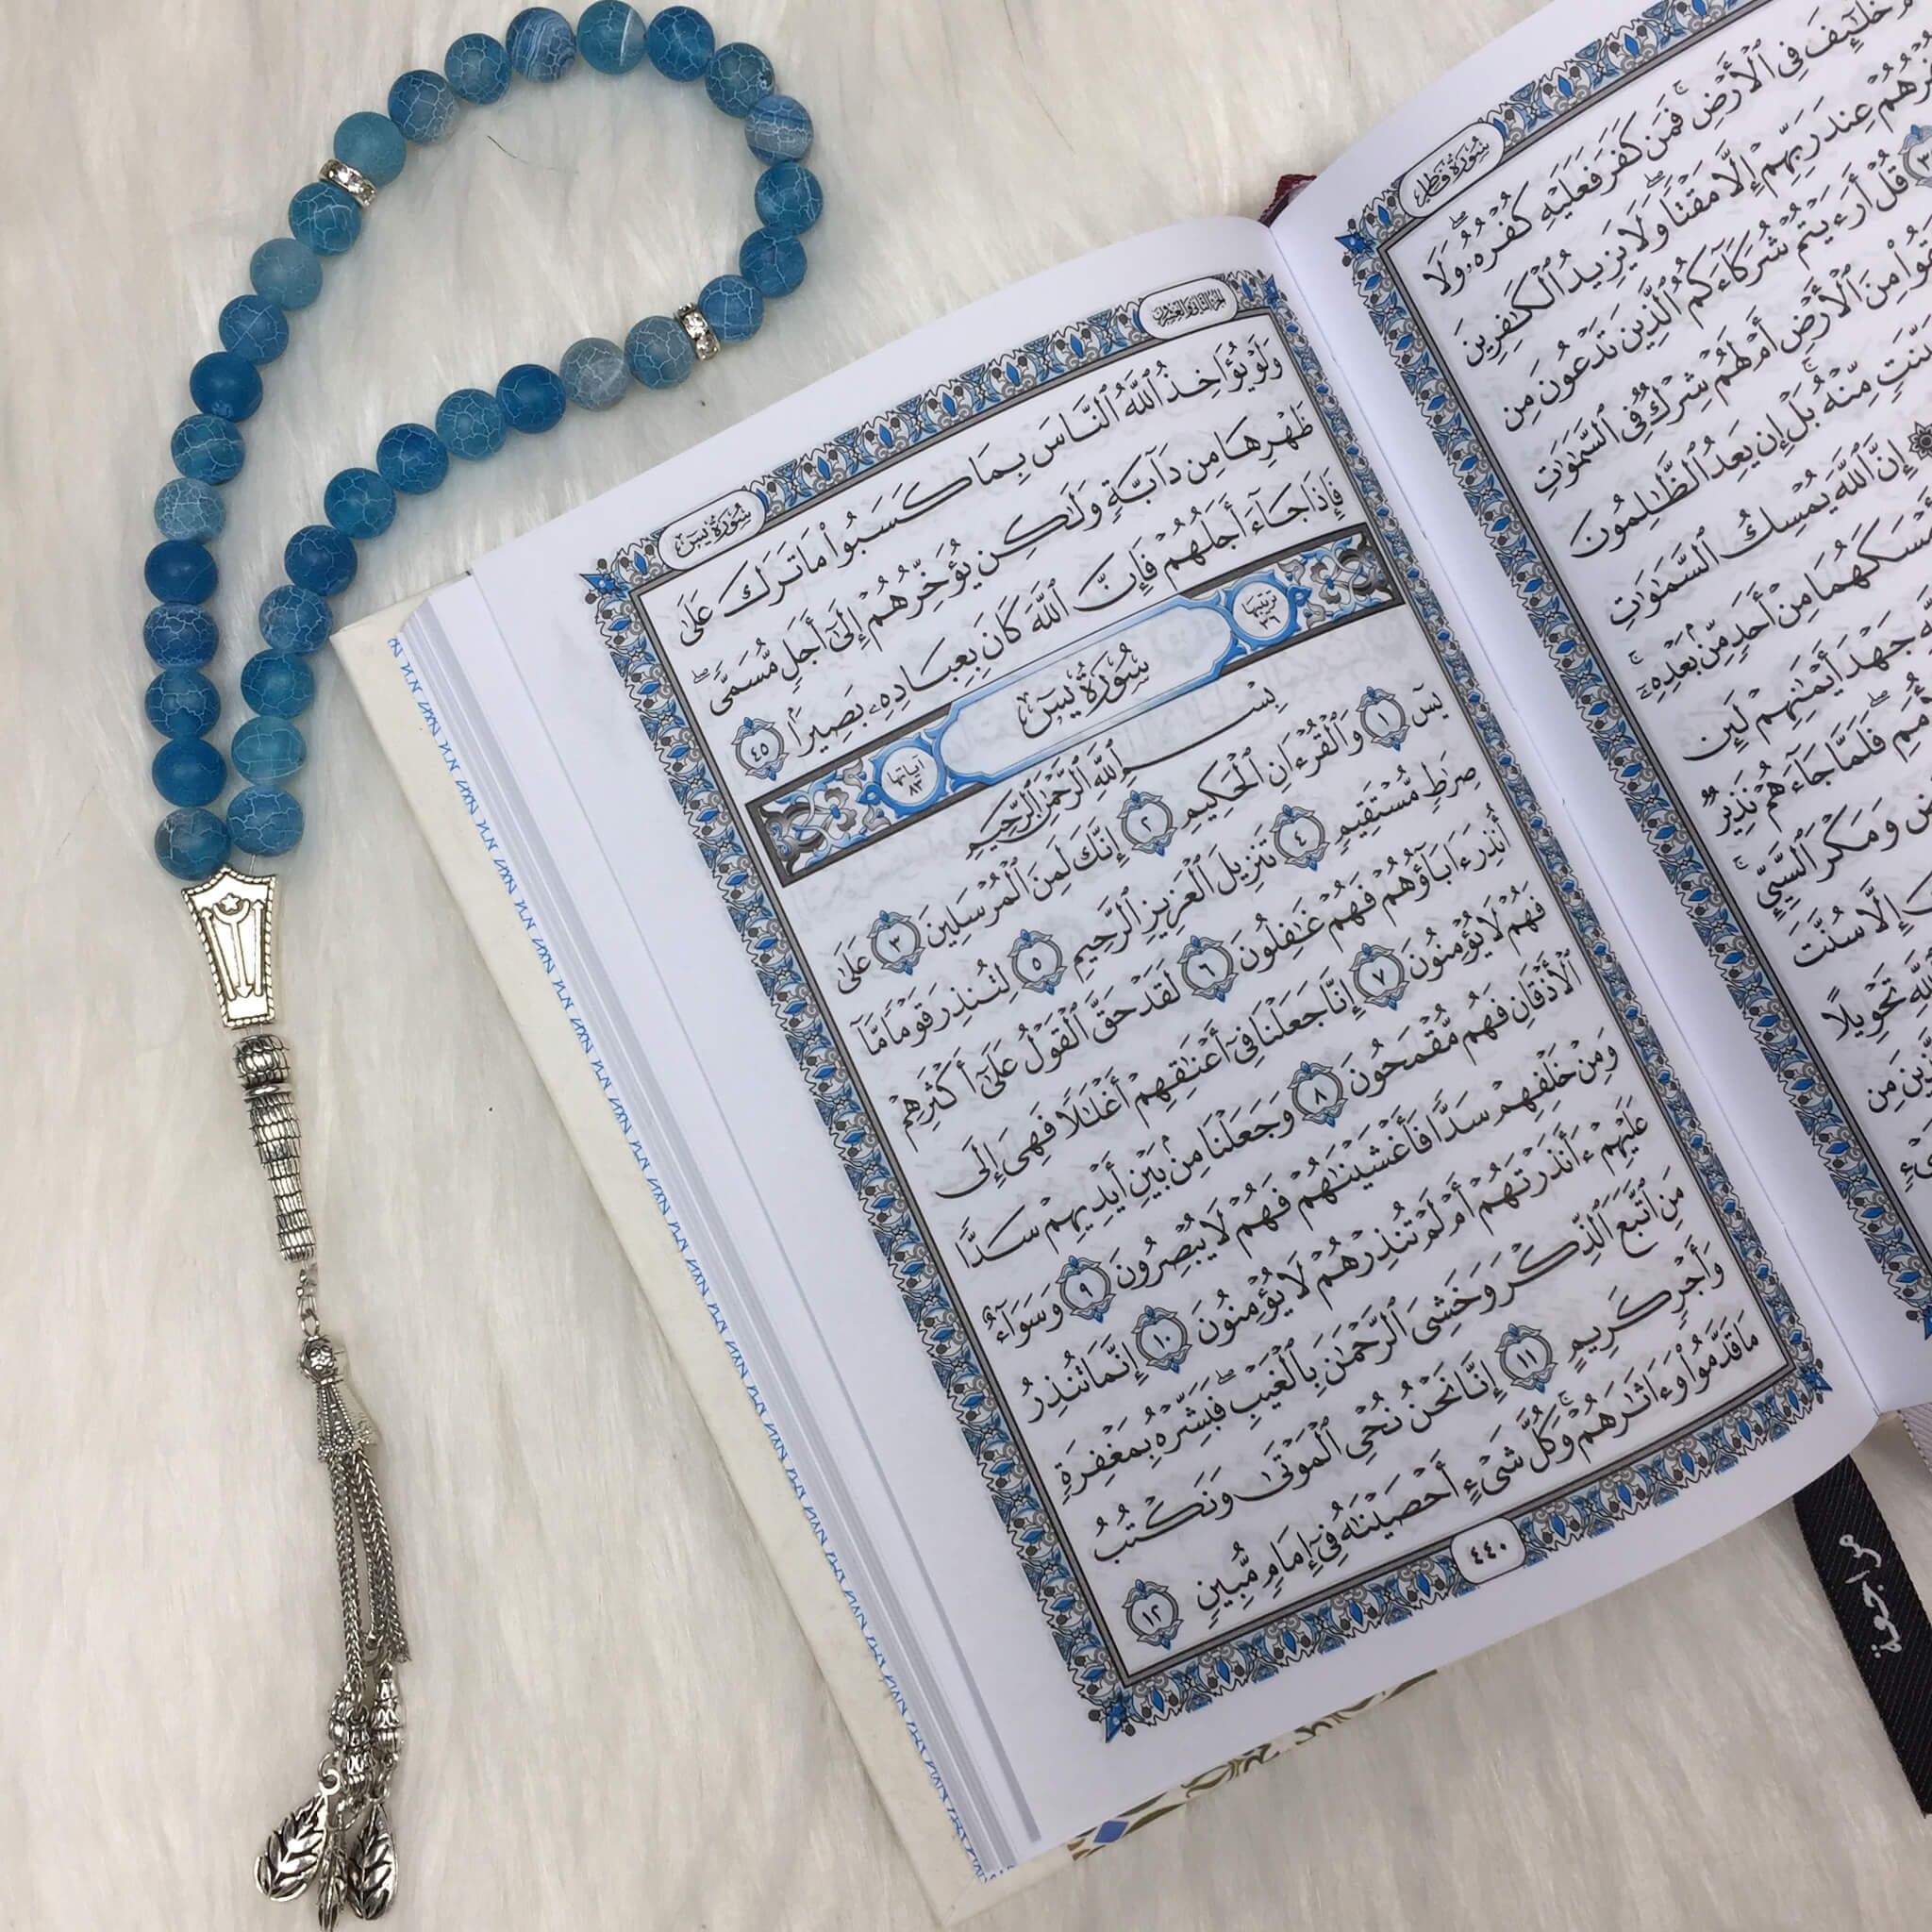 سُورَةُ فَاطِرٍ
خَلَٰٓئِفَ فِى ٱلْأَرْضِ ۚ فَمَن كَفَرَ فَعَلَيْهِ كُفْرُهُۥ ۖ وَلَا
عِندَ رَبِّهِمْ إِلَّا مَقْتًا ۖ وَلَا يَزِيدُ ٱلْكَٰفِرِينَ
قُلْ أَرَءَيْتُمْ شُرَكَآءَكُمُ ٱلَّذِينَ تَدْعُونَ مِن
مِنَ ٱلْأَرْضِ أَمْ لَهُمْ شِرْكٌ فِى ٱلسَّمَٰوَٰتِ
مِّنْهُ ۚ بَلْ إِن يَعِدُ ٱلظَّٰلِمُونَ
إِنَّ ٱللَّهَ يُمْسِكُ ٱلسَّمَٰوَٰتِ
مِنْ أَحَدٍ مِّنۢ بَعْدِهِۦٓ ۚ
جَهْدَ أَيْمَٰنِهِمْ لَئِن
فَلَمَّا جَآءَهُمْ نَذِيرٌ
وَمَكْرَ ٱلسَّيِّئِ ۚ
إِلَّا سُنَّتَ
تَحْوِيلًا
مِن
الجزء الثاني والعشرون
سُورَةُ يسٓ
وَلَوْ يُؤَاخِذُ ٱللَّهُ ٱلنَّاسَ بِمَا كَسَبُوا۟ مَا تَرَكَ عَلَىٰ
ظَهْرِهَا مِن دَآبَّةٍ وَلَٰكِن يُؤَخِّرُهُمْ إِلَىٰٓ أَجَلٍ مُّسَمًّى ۖ
فَإِذَا جَآءَ أَجَلُهُمْ فَإِنَّ ٱللَّهَ كَانَ بِعِبَادِهِۦ بَصِيرًۢا ٤٥
ترتيبها ٣٦ سُورَةُ يسٓ آياتها ٨٣
بِسْمِ ٱللَّهِ ٱلرَّحْمَٰنِ ٱلرَّحِيمِ
يسٓ ١ وَٱلْقُرْءَانِ ٱلْحَكِيمِ ٢ إِنَّكَ لَمِنَ ٱلْمُرْسَلِينَ ٣ عَلَىٰ
صِرَٰطٍ مُّسْتَقِيمٍ ٤ تَنزِيلَ ٱلْعَزِيزِ ٱلرَّحِيمِ ٥ لِتُنذِرَ قَوْمًا مَّآ
أُنذِرَ ءَابَآؤُهُمْ فَهُمْ غَٰفِلُونَ ٦ لَقَدْ حَقَّ ٱلْقَوْلُ عَلَىٰٓ أَكْثَرِهِمْ
فَهُمْ لَا يُؤْمِنُونَ ٧ إِنَّا جَعَلْنَا فِىٓ أَعْنَٰقِهِمْ أَغْلَٰلًا فَهِىَ إِلَى
ٱلْأَذْقَانِ فَهُم مُّقْمَحُونَ ٨ وَجَعَلْنَا مِنۢ بَيْنِ أَيْدِيهِمْ سَدًّا
وَمِنْ خَلْفِهِمْ سَدًّا فَأَغْشَيْنَٰهُمْ فَهُمْ لَا يُبْصِرُونَ ٩ وَسَوَآءٌ
عَلَيْهِمْ ءَأَنذَرْتَهُمْ أَمْ لَمْ تُنذِرْهُمْ لَا يُؤْمِنُونَ ١٠ إِنَّمَا تُنذِرُ
مَنِ ٱتَّبَعَ ٱلذِّكْرَ وَخَشِىَ ٱلرَّحْمَٰنَ بِٱلْغَيْبِ ۖ فَبَشِّرْهُ بِمَغْفِرَةٍ
وَأَجْرٍ كَرِيمٍ ١١ إِنَّا نَحْنُ نُحْىِ ٱلْمَوْتَىٰ وَنَكْتُبُ
مَا قَدَّمُوا۟ وَءَاثَٰرَهُمْ ۚ وَكُلَّ شَىْءٍ أَحْصَيْنَٰهُ فِىٓ إِمَامٍ مُّبِينٍ ١٢
٤٤٠
مراجعة